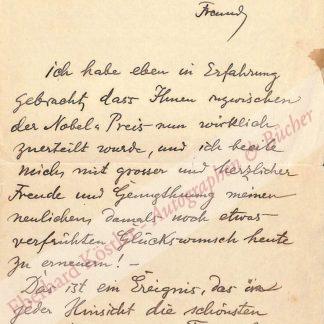 Freund,
ich habe eben in Erfahrung
gebracht, dass Ihnen inzwischen
der Nobel-Preis nun wirklich
zuerteilt wurde, und ich beeile
mich, mit grosser und herzlicher
Freude und Genugthuung meinen
neulichen, damals noch etwas
verfrühten Glückswunsch heute
zu erneuern! –
Das ist ein Ereignis, das in
jeder Hinsicht die schönsten
Eberhard Köstler Autographen & Bücher